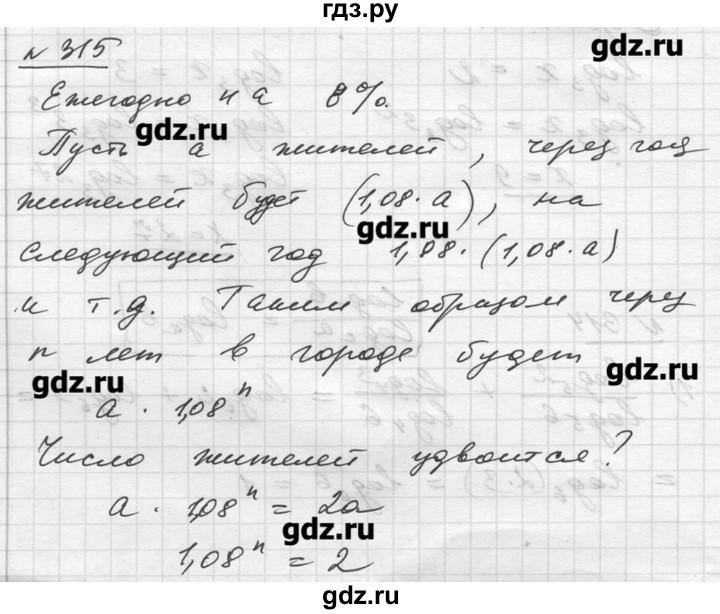 гдз.ру
gdz.ru
№ 315
Ежегодно на 8%.
gdz.ru
Пусть а жителей, через год
жителей будет (1,08·а), на
gdz.ru
следующий год 1,08·(1,08·а)
и т.д. Таким образом через
n лет в городе будет
gdz.ru
gdz.ru
а · 1,08ⁿ
Число жителей удвоится?
а · 1,08ⁿ = 2а
gdz.ru
1,08ⁿ = 2
gdz.ru